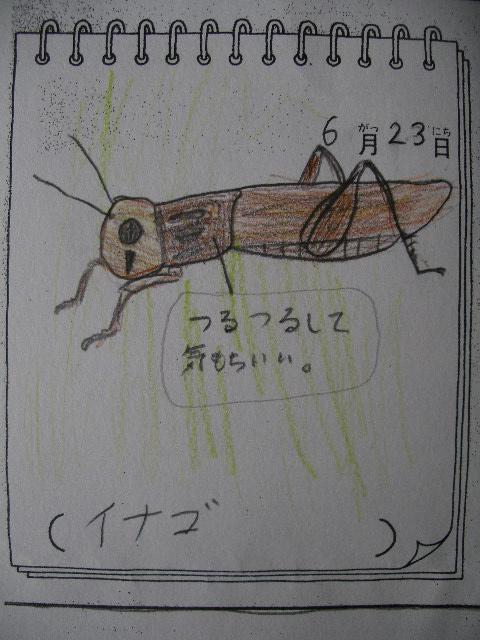 6月23日
がつ にち
つるつるして
気もちいい。
(イナゴ)